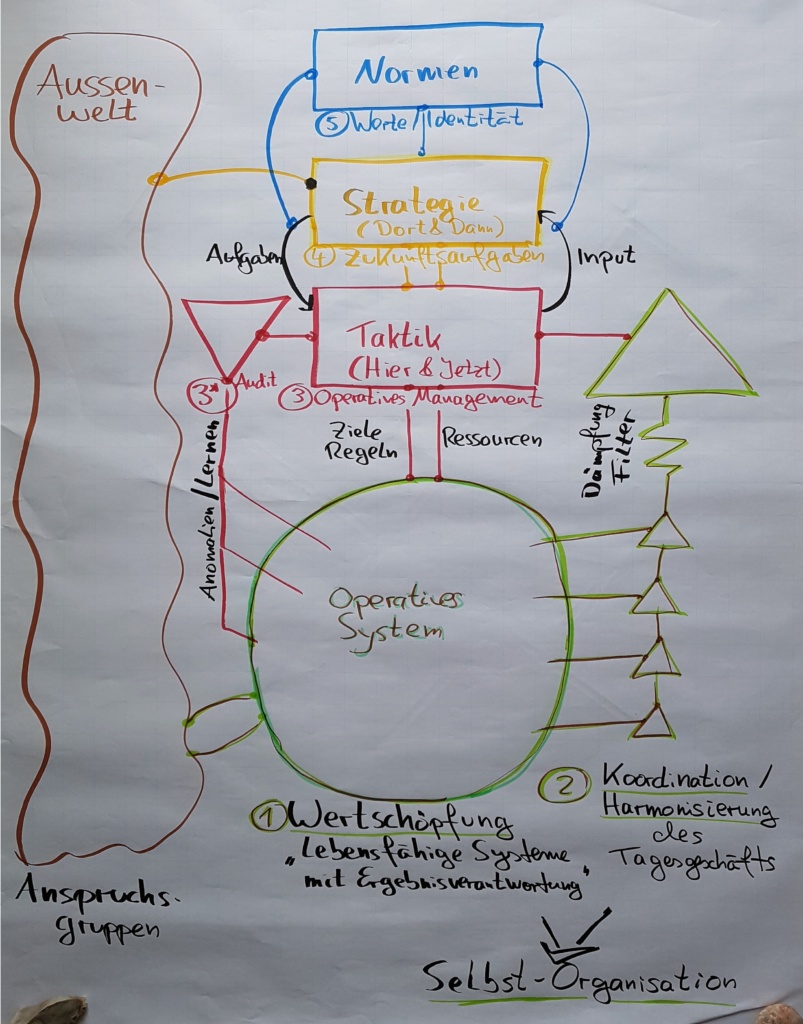 Aussen-
welt
Normen
⑤ Werte/Identität
Strategie
(Dort & Dann)
④ Zukunftsaufgaben
Aufgaben
Input
Taktik
(Hier & Jetzt)
3* Audit
③ Operatives Management
Ziele
Regeln
Ressourcen
Dämpfung
Filter
Anomalien/Lernen
Operatives
System
① Wertschöpfung
„Lebensfähige Systeme
mit Ergebnisverantwortung"
② Koordination /
Harmonisierung
des
Tagesgeschäfts
Anspruchs-
gruppen
Selbst-Organisation